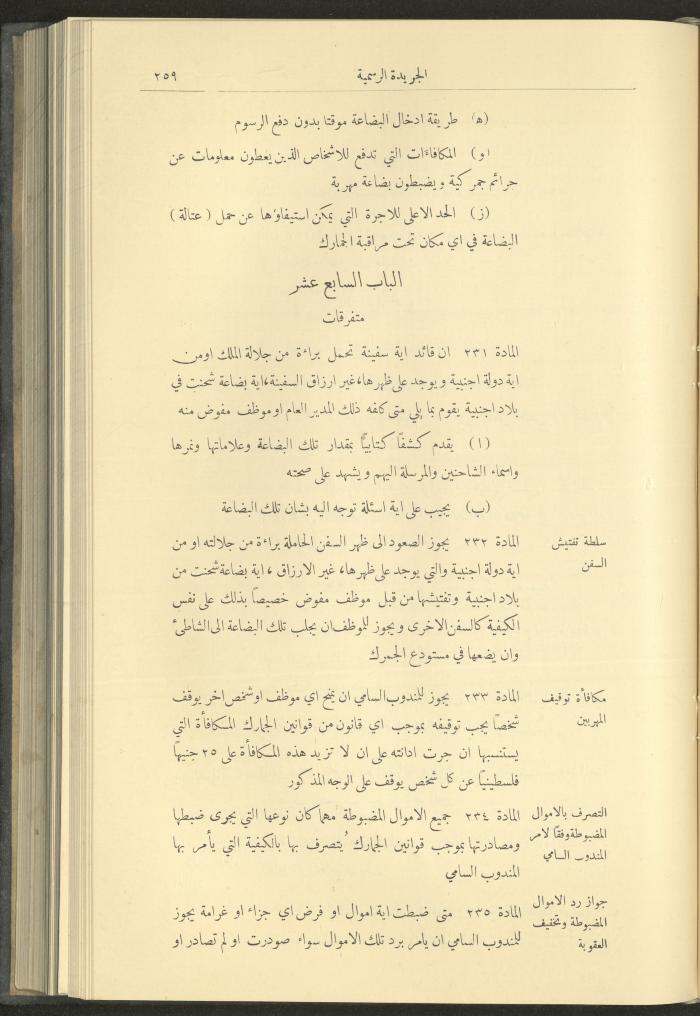 الجريدة الرسمية
٢٥٩
(ﻫ) طريقة ادخال البضاعة موقتا بدون دفع الرسوم
(و) المكافاءات التي تدفع للاشخاص الذين يعطون معلومات عن
جرائم جمركية ويضبطون بضاعة مهربة
(ز) الحد الاعلى للاجرة التي يمكن استيفاؤها عن حمل (عتالة)
البضاعة في اي مكان تحت مراقبة الجمارك
الباب السابع عشر
متفرقات
المادة ٢٣١ ان قائد اية سفينة تحمل براءة من جلالة الملك او من
اية دولة اجنبية ويوجد على ظهرها، غير ارزاق السفينة، اية بضاعة شحنت في
بلاد اجنبية يقوم بما يلي متى كلفه ذلك المدير العام او موظف مفوض منه
(ا) يقدم كشفاً كتابياً بمقدار تلك البضاعة وعلاماتها ونمرها
واسماء الشاحنين والمرسلة اليهم ويشهد على صحته
(ب) يجيب على اية اسئلة توجه اليه بشان تلك البضاعة
سلطة تفتيش
السفن
المادة ٢٣٢ يجوز الصعود الى ظهر السفن الحاملة براءة من جلالته او من
اية دولة اجنبية والتي يوجد على ظهرها، غير الارزاق، اية بضاعة شحنت من
بلاد اجنبية وتفتيشها من قبل موظف مفوض خصيصاً بذلك على نفس
الكيفية كالسفن الاخرى ويجوز للموظف ان يجلب تلك البضاعة الى الشاطئ
وان يضعها في مستودع الجمرك
مكافأة توقيف
المهربين
المادة ٢٣٣ يجوز للمندوب السامي ان يمنح اي موظف او شخص اخر يوقف
شخصاً يجب توقيفه بموجب اي قانون من قوانين الجمارك المكافأة التي
يستنسبها ان جرت ادانته على ان لا تزيد هذه المكافأة على ٢٥ جنيهاً
فلسطينياً عن كل شخص يوقف على الوجه المذكور
التصرف بالاموال
المضبوطة وفقاً لامر
المندوب السامي
المادة ٢٣٤ جميع الاموال المضبوطة مهما كان نوعها التي يجرى ضبطها
ومصادرتها بموجب قوانين الجمارك يُتصرف بها بالكيفية التي يأمر بها
المندوب السامي
جواز رد الاموال
المضبوطة وتخفيف
العقوبة
المادة ٢٣٥ متى ضبطت اية اموال او فرض اي جزاء او غرامة يجوز
للمندوب السامي ان يامر برد تلك الاموال سواء صودرت او لم تصادر او